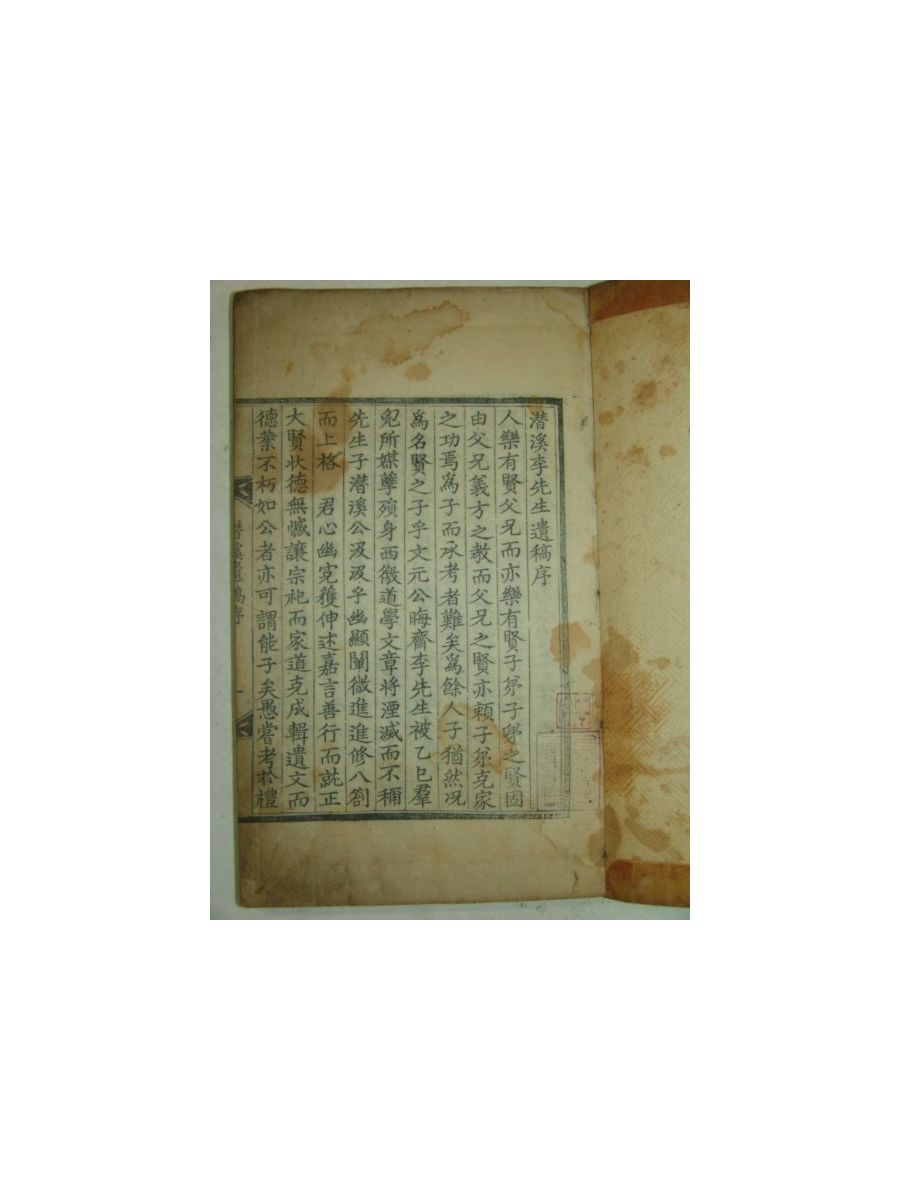 潛溪李先生遺稿序
人樂有賢父兄而亦樂有賢子弟子弟之賢固
由父兄義方之教而父兄之賢亦頼子弟克家
之功焉爲子而承考者難矣爲餘人子猶然况
爲名賢之子乎文元公晦齋李先生被乙巳羣
兇所媒孽殞身西徼道學文章將湮滅而不稱
先生子潛溪公汲汲乎幽顯闡微進進修八劄
而上格　君心幽寃獲伸述嘉言善行而就正
大賢狀德無憾讓宗祀而家道克成輯遺文而
德業不朽如公者亦可謂能子矣愚嘗考於禮
潛溪遺稿序
一